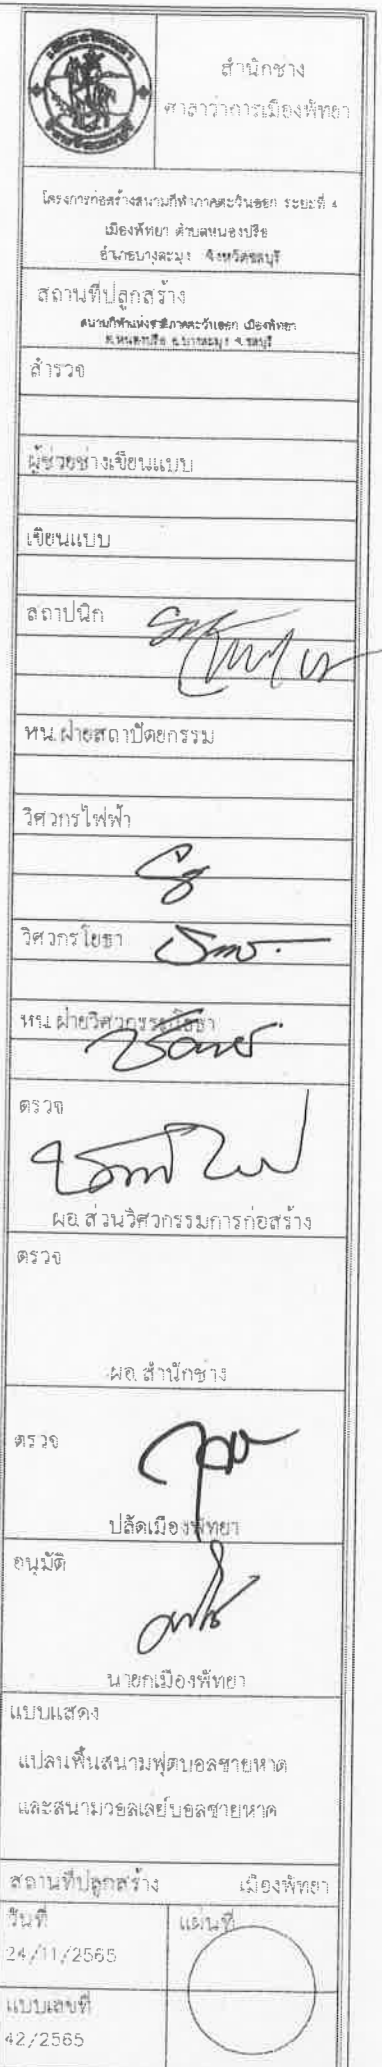 สำนักช่าง
ศาลาว่าการเมืองพัทยา
โครงการก่อสร้างสนามกีฬาภาคตะวันออก ระยะที่ 4
เมืองพัทยา ตำบลหนองปรือ
อำเภอบางละมุง จังหวัดชลบุรี
สถานที่ปลูกสร้าง
สนามกีฬาแห่งชาติภาคตะวันออก เมืองพัทยา
ต.หนองปรือ อ.บางละมุง จ.ชลบุรี
สำรวจ
ผู้ช่วยช่างเขียนแบบ
เขียนแบบ
สถาปนิก
หน.ฝ่ายสถาปัตยกรรม
วิศวกรไฟฟ้า
วิศวกรโยธา
หน.ฝ่ายวิศวกรรมโยธา
ตรวจ
ผอ.ส่วนวิศวกรรมการก่อสร้าง
ตรวจ
ผอ.สำนักช่าง
ตรวจ
ปลัดเมืองพัทยา
อนุมัติ
นายกเมืองพัทยา
แบบแสดง
แปลนพื้นสนามฟุตบอลชายหาด
และสนามวอลเลย์บอลชายหาด
สถานที่ปลูกสร้าง เมืองพัทยา
วันที่
24/11/2565
แผ่นที่
แบบเลขที่
42/2565